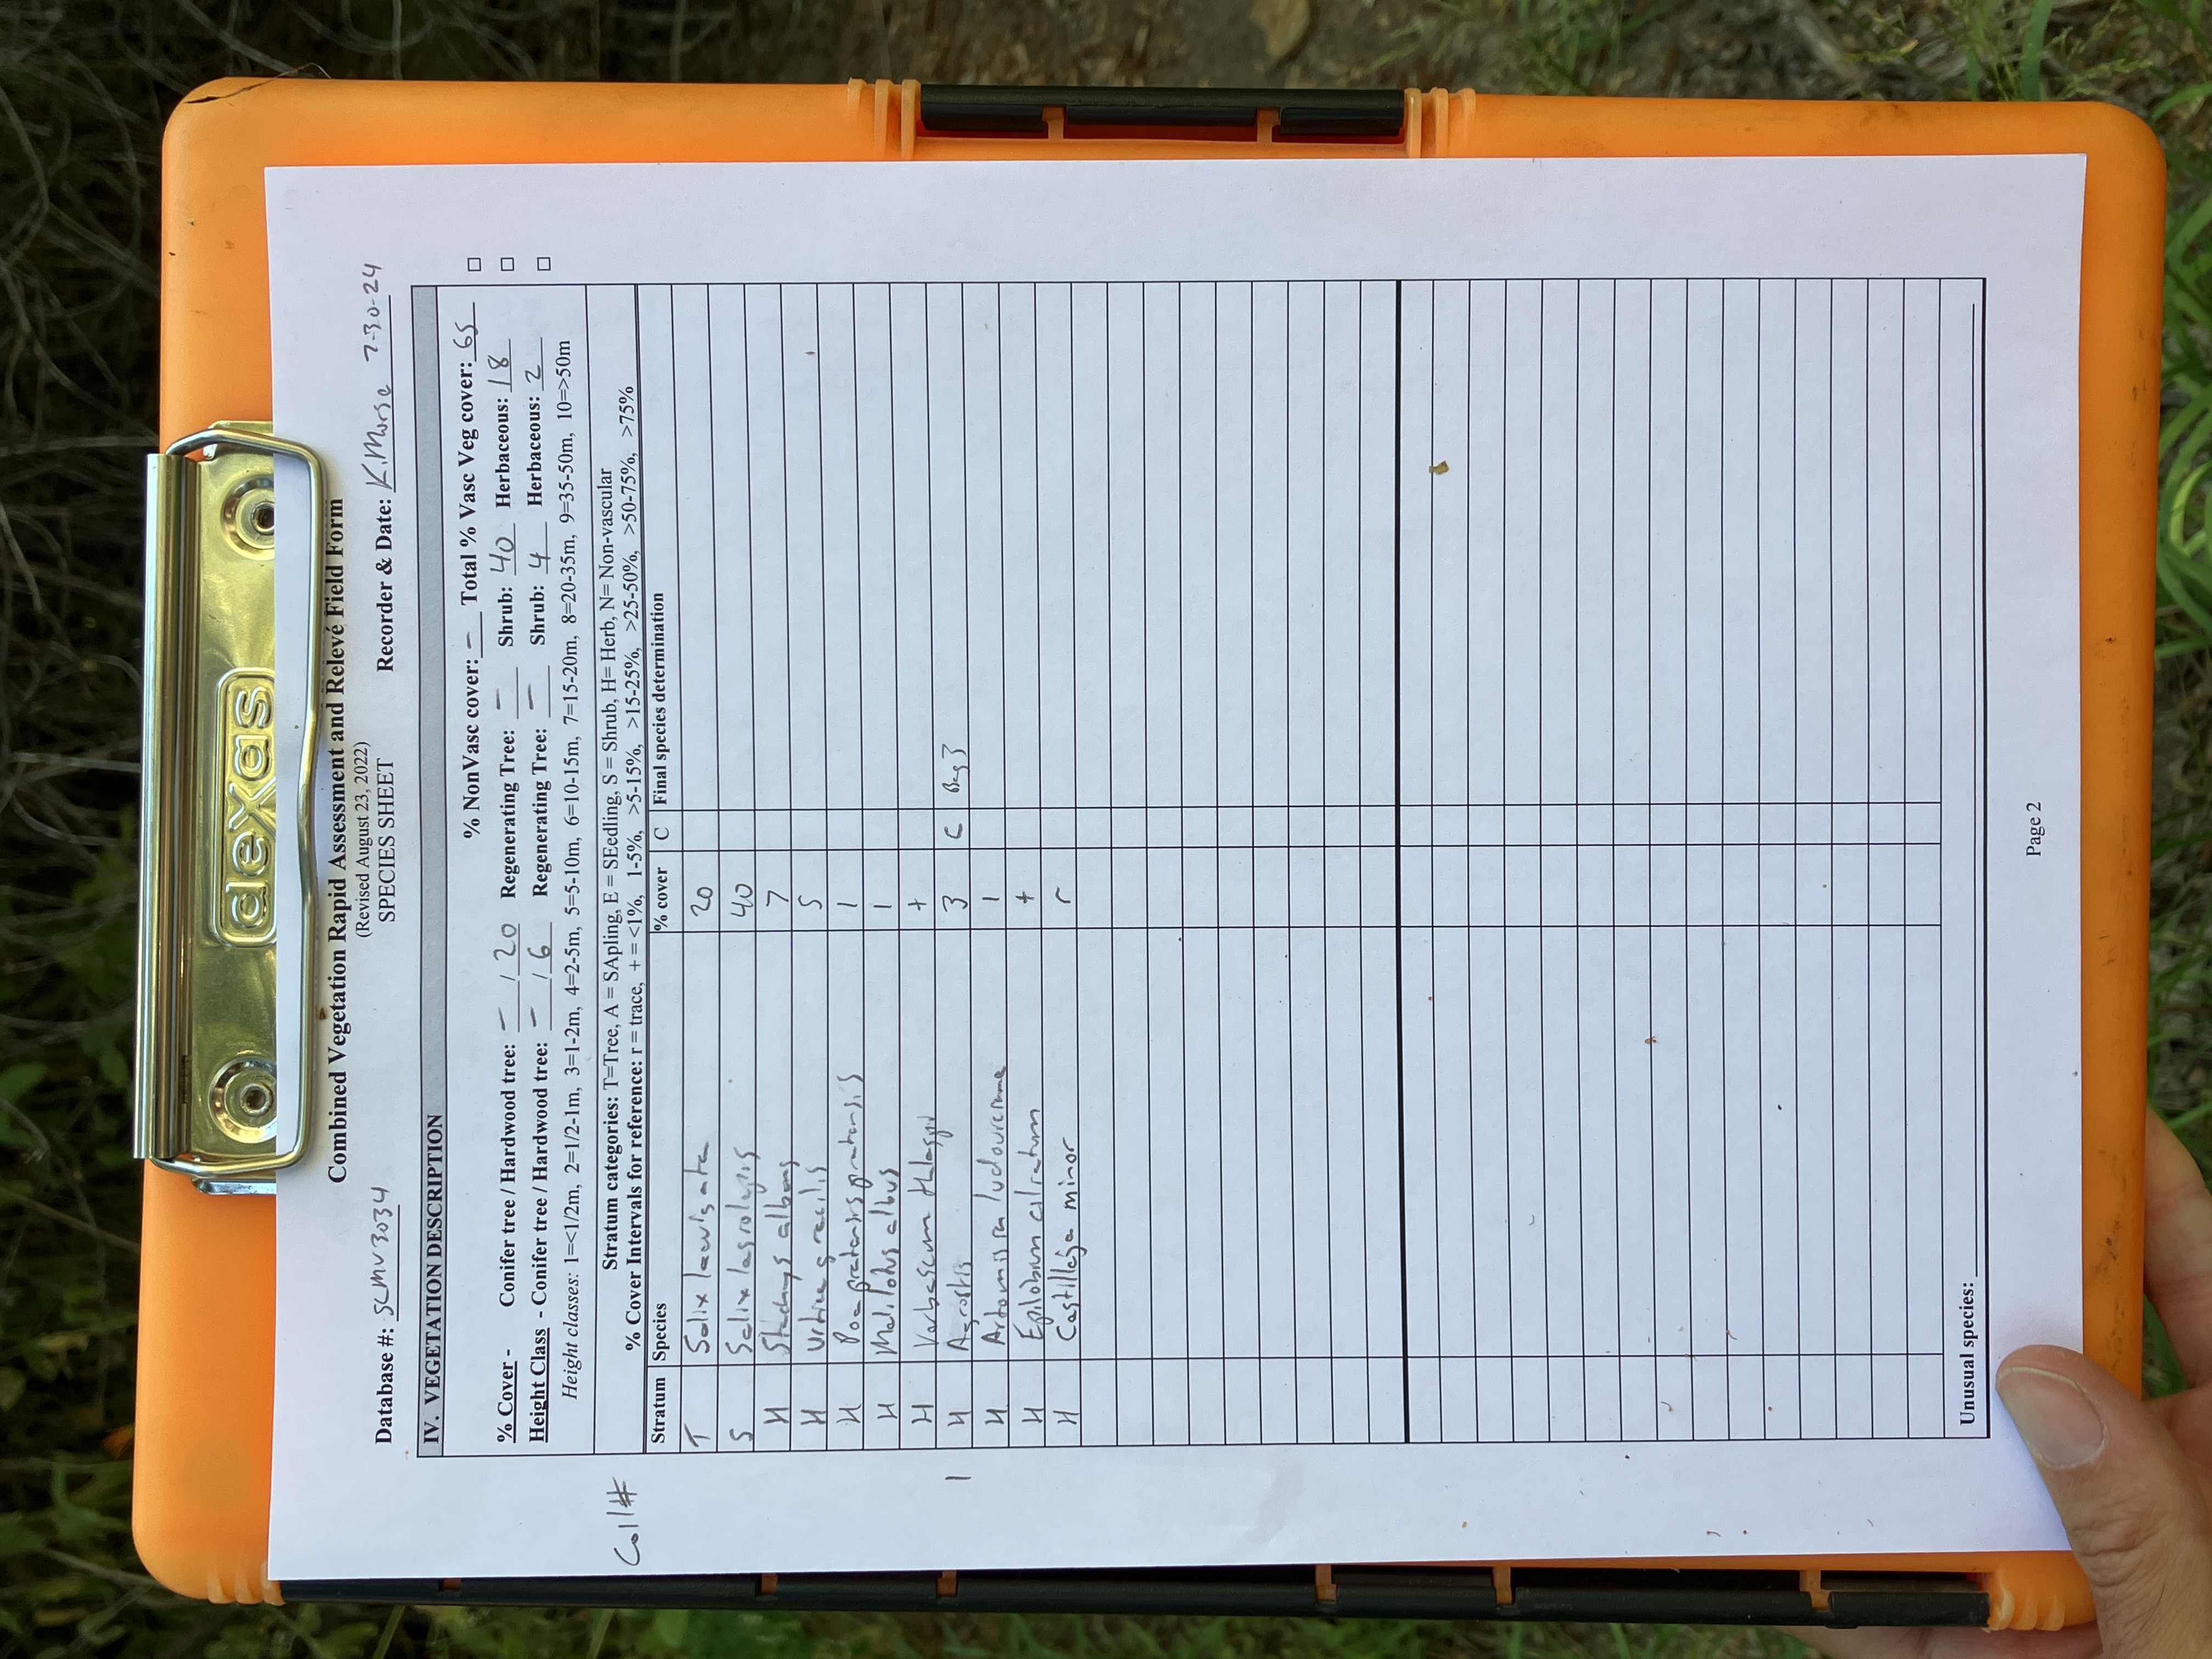 dexas
Combined Vegetation Rapid Assessment and Relevé Field Form
(Revised August 23, 2022)
SPECIES SHEET
Database #: SCMV3034 Recorder & Date: K. Morse 7-30-24
IV. VEGETATION DESCRIPTION
% NonVasc cover: — Total % Vasc Veg cover: 65 □
% Cover - Conifer tree / Hardwood tree: — / 20 Regenerating Tree: — Shrub: 40 Herbaceous: 18 □
Height Class - Conifer tree / Hardwood tree: — / 6 Regenerating Tree: — Shrub: 4 Herbaceous: 2 □
Height classes: 1=<1/2m, 2=1/2-1m, 3=1-2m, 4=2-5m, 5=5-10m, 6=10-15m, 7=15-20m, 8=20-35m, 9=35-50m, 10=>50m
Stratum categories: T=Tree, A = SApling, E = SEedling, S = Shrub, H= Herb, N= Non-vascular
% Cover Intervals for reference: r = trace, + = <1%, 1-5%, >5-15%, >15-25%, >25-50%, >50-75%, >75%
Coll# Stratum Species % cover C Final species determination
T Salix laevigata 20
S Salix lasiolepis 40
H Stachys albens 7
H Urtica gracilis 5
H Poa pratensis pratensis 1
H Melilotus albus 1
H Verbascum thlaspi +
1 H Agrostis 3 C Bag 3
H Artemisia ludoviciana 1
H Epilobium ciliatum +
H Castilleja minor r
Unusual species:
Page 2